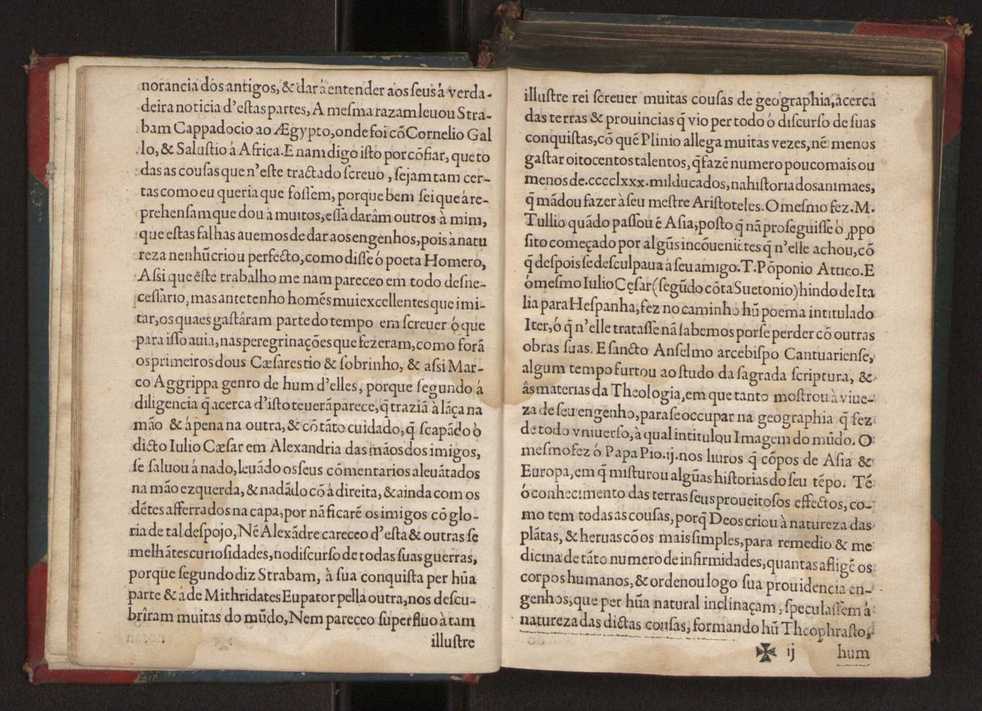 norancia dos antigos, & dará entender aos seus á verda-
deira noticia d'estas partes, A mesma razam leuou Stra-
bam Cappadocio ao Ægypto, onde foi cõ Cornelio Gal
lo, & Salustio á Africa. E nam digo isto por cõfiar, que to
das as cousas que n'este tractado screuo, sejam tam cer-
tas como eu queria que fossem, porque bem sei que à re-
prehensam que dou à muitos, essa darâm outros à mim,
que estas falhas auemos de dar aos engenhos, pois à natu
reza nenhũ criou perfecto, como disse ó poeta Homero,
Assi que ẽste trabalho me nam pareceo em todo desne-
cessario, mas ante tenho homẽs mui excellentes que imi-
tar, os quaes gastâram parte do tempo em screuer ó que
para isso auia, nas peregrinações que fezeram, como forã
os primeiros dous Cæsares tio & sobrinho, & assi Mar-
co Aggrippa genro de hum d'elles, porque segundo á
diligencia q̃ acerca d'isto teuerã parece, q̃ traziã à lãça na
mão & á pena na outra, & cõ tãto cuidado, q̃ scapãdo ò
dicto Iulio Cæsar em Alexandria das mãos dos imigos,
se saluou à nado, leuãdo os seus cõmentarios aleuãtados
na mão ezquerda, & nadãdo cõ à direita, & ainda com os
dẽtes afferrados na capa, por nã ficarẽ os imigos cõ glo-
ria de tal despojo, Nẽ Alexãdre careceo d'esta & outras se
melhãtes curiosidades, no discurso de todas suas guerras,
porque segundo diz Strabam, à sua conquista per hũa
parte & à de Mithridates Eupator pella outra, nos descu-
brîram muitas do mũdo, Nem pareceo superfluo à tam
illustre
illustre rei screuer muitas cousas de geographia, àcerca
das terras & prouincias q̃ vio per todo ò discurso de suas
conquistas, cõ quẽ Plinio allega muitas vezes, nẽ menos
gastar oitocentos talentos, q̃ fazẽ numero pouco mais ou
menos de .cccclxxx. mil ducados, na historia dos animaes,
q̃ mãdou fazer à seu mestre Aristoteles. O mesmo fez. M.
Tullio quãdo passou ẽ Asia, posto q̃ nã proseguisse ò ꝓpo
sito começado por algũs incõuenientes q̃ n'elle achou, cõ
q̃ despois se desculpaua à seu amigo. T. Põponio Attico. E
ó mesmo Iulio Cęsar (segũdo cõta Suetonio) hindo de Ita
lia para Hespanha, fez no caminho hũ poema intitulado
Iter, ó q̃ n'elle tratasse nã sabemos por se perder cõ outras
obras suas. E sancto Anselmo arcebispo Cantuariense,
algum tempo furtou ao studo da sagrada scriptura, &
âs materias da Theologia, em que tanto mostrou à viue-
za de seu engenho, para se occupar na geographia q̃ fez
de todo vniuerso, à qual intitulou Imagem do mũdo. O
mesmo fez ò Papa Pio .ij. nos liuros q̃ cõpos de Asia &
Europa, em q̃ misturou algũas historias do seu tẽpo. Tẽ
ó conhecimento das terras seus proueitosos effectos, co-
mo tem todas as cousas, porq̃ Deos criou à natureza das
plãtas, & heruas cõ os mais simples, para remedio & me
dicina de tãto numero de infirmidades, quantas afligẽ os
corpos humanos, & ordenou logo sua prouidencia en-
genhos, que per hũa natural inclinaçam, speculassem à
natureza das dictas cousas, formando hũ Theophrasto,
✠ ij hum